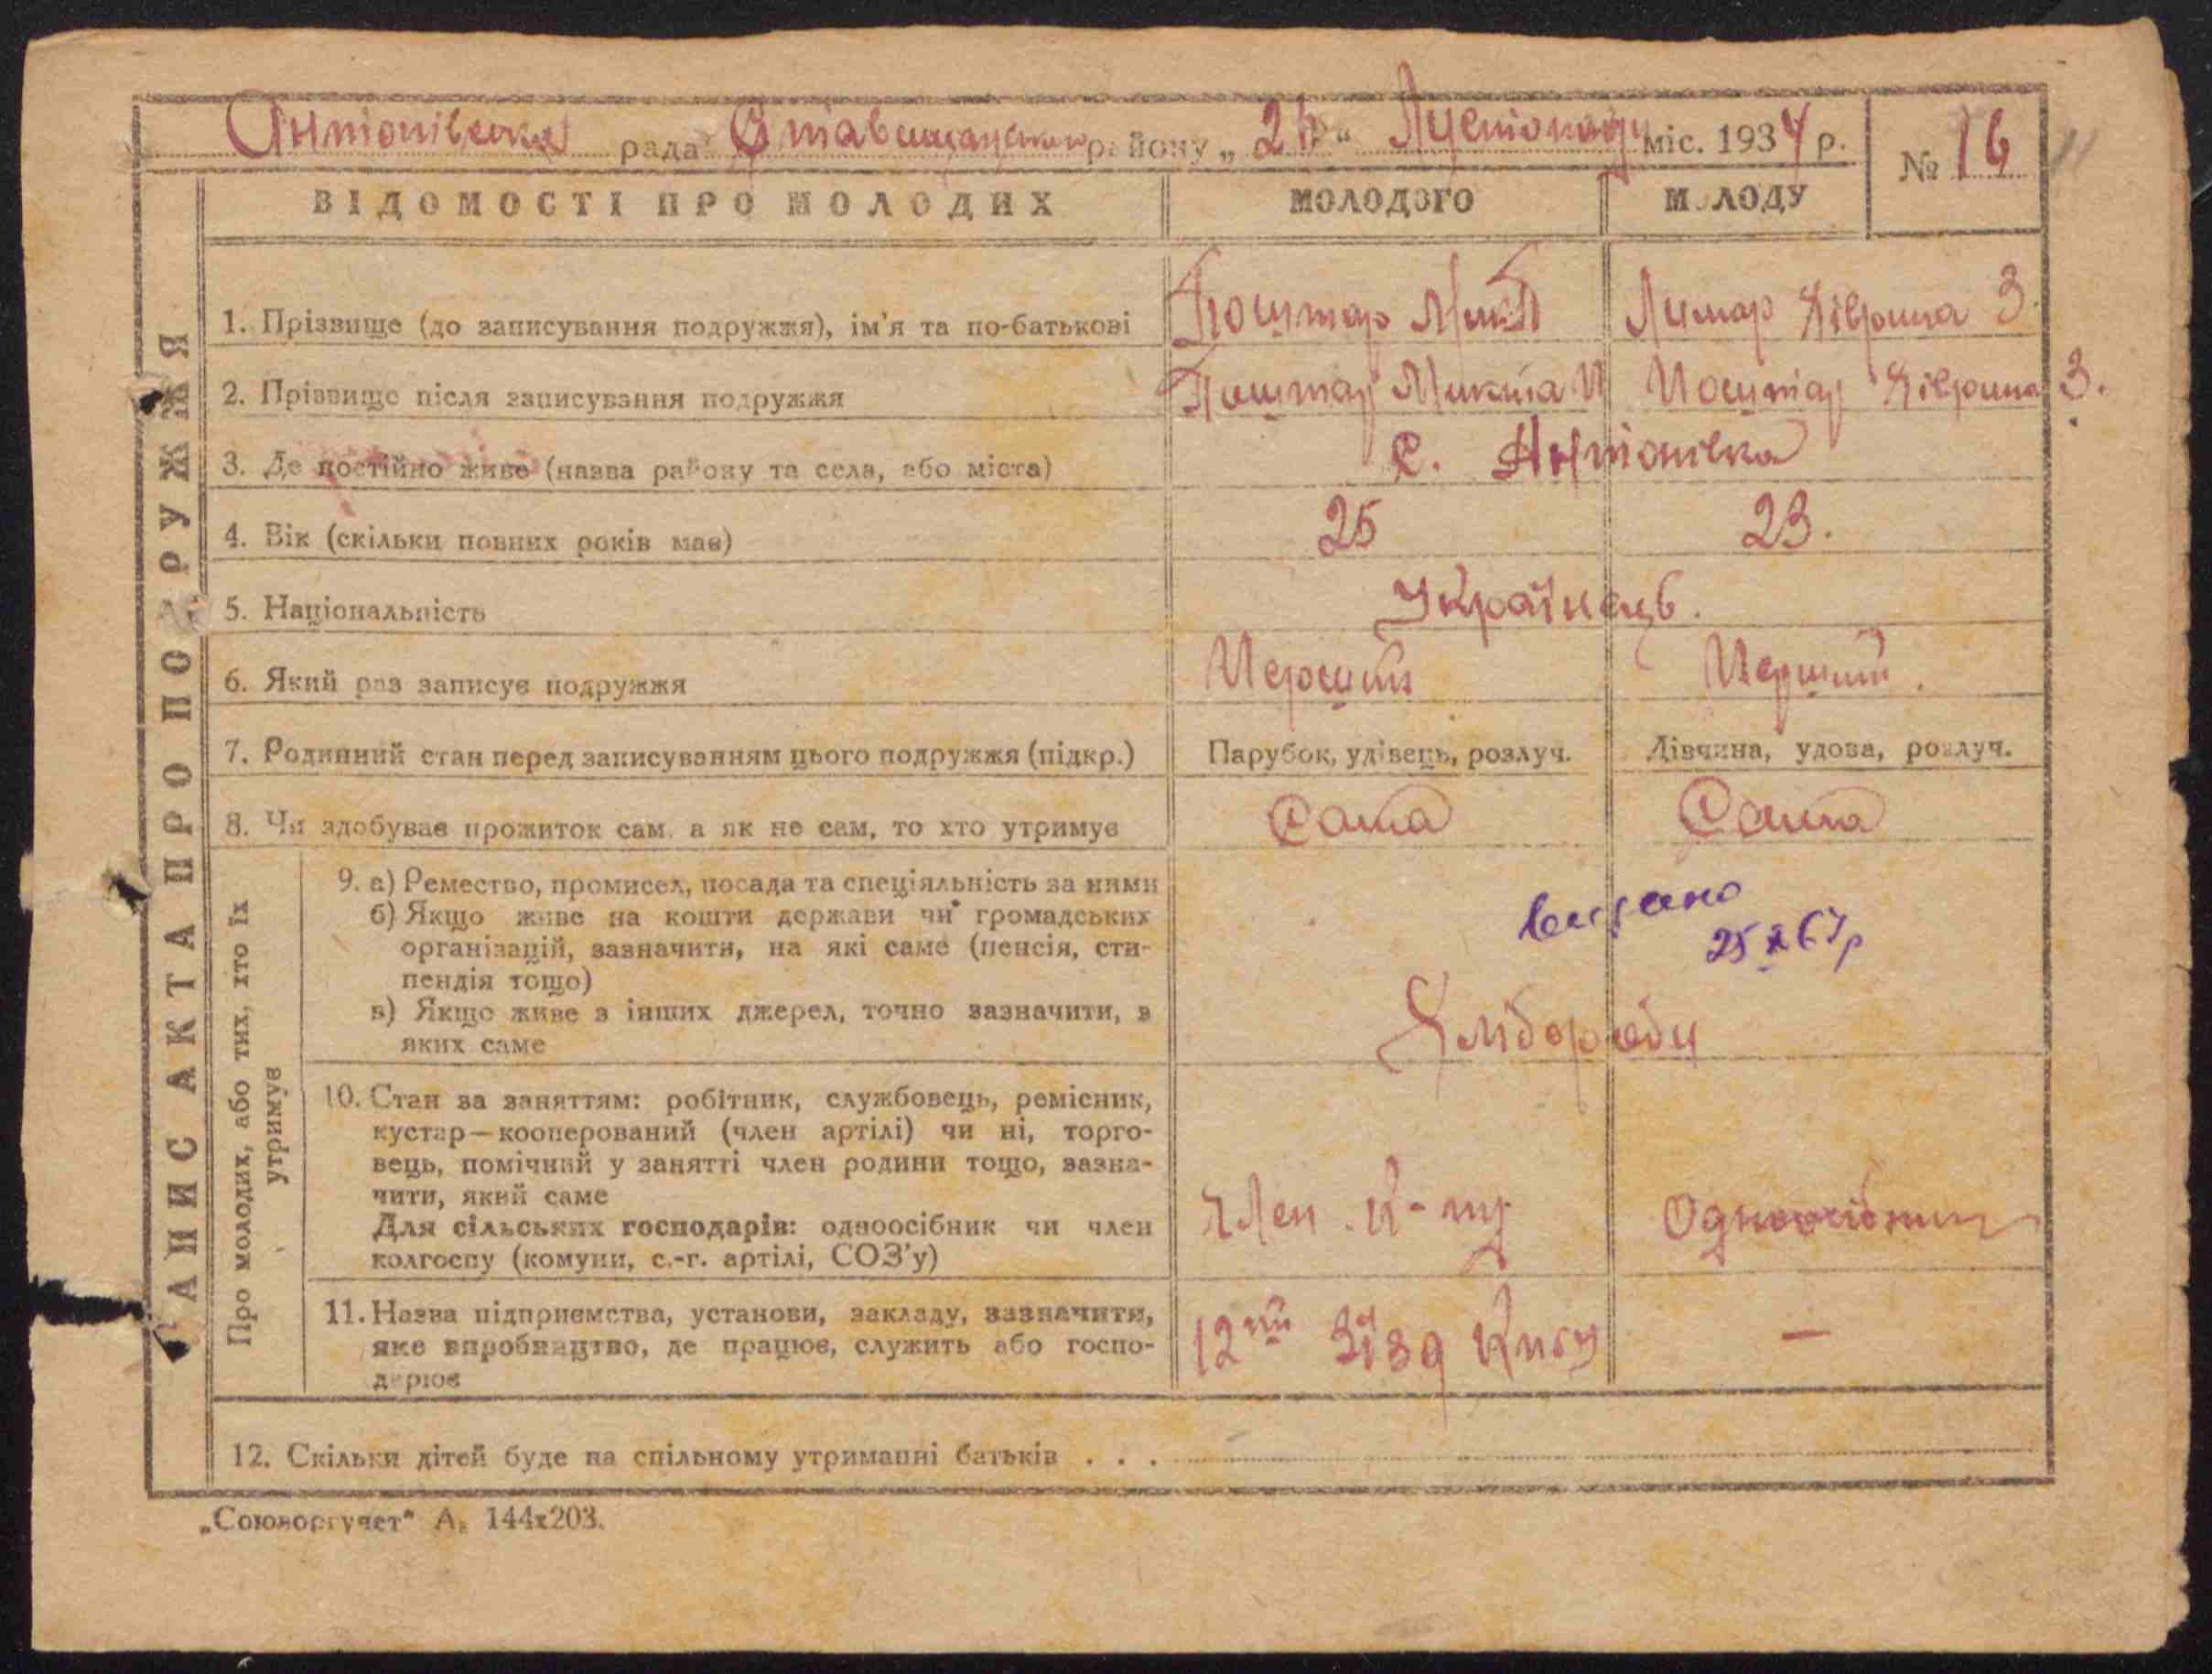 Антонівська рада Ставищанського району „ 24 “ Лютого міс. 1934 р. № 16
ЗАПИС АКТА ПРО ПОДРУЖЖЯ
ВІДОМОСТІ ПРО МОЛОДИХ МОЛОДОГО МОЛОДУ
1. Прізвище (до записування подружжя), ім'я та по-батькові Поштар Лимар Явдоха З.
2. Прізвище після записування подружжя Поштар Микита И Поштар З.
3. Де постійно живе (назва району та села, або міста) с. Антонівка
4. Вік (скільки повних років має) 25 23.
5. Національність Українець.
6. Який раз записує подружжя Перший Перший.
7. Родинний стан перед записуванням цього подружжя (підкр.) Парубок, удівець, розлуч. Дівчина, удова, розлуч.
8. Чи здобуває прожиток сам, а як не сам, то хто утримує Сама Сама
Про молодих, або тих, хто їх утримує
9. а) Ремество, промисел, посада та спеціяльність за ними
б) Якщо живе на кошти держави чи громадських
організацій, зазначити, на які саме (пенсія, сти-
пендія тощо)
в) Якщо живе з інших джерел, точно зазначити, з
яких саме
видано
25 X 67р
Хлібороби
10. Стан за заняттям: робітник, службовець, ремісник,
кустар—кооперований (член артілі) чи ні, торго-
вець, помічний у занятті член родини тощо, зазна-
чити, який саме
Для сільських господарів: одноосібник чи член
колгоспу (комуни, с.-г. артілі, СОЗ'у)
Член к-пу Одноосібник
11. Назва підприємства, установи, закладу, зазначити,
яке виробництво, де працює, служить або госпо-
дарює
12ий Зїзд —
12. Скільки дітей буде на спільному утриманні батьків . . .
„Союзоргучет“ А. 144x203.